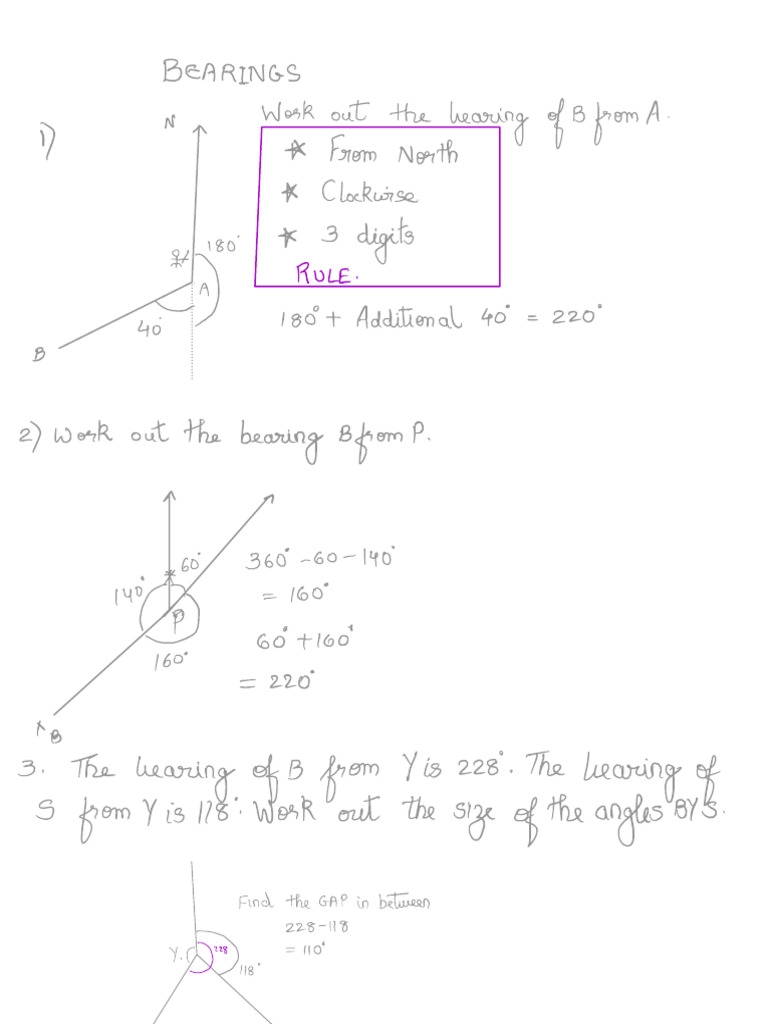 BEARINGS
1)
N
Work out the bearing of B from A.
* From North
* Clockwise
* 3 digits
RULE.
180°
A
40°
B
180° + Additional 40° = 220°
2) Work out the bearing B from P.
60°
140°
P
160°
B
360° - 60 - 140°
= 160°
60° + 160°
= 220°
3. The bearing of B from Y is 228°. The bearing of
S from Y is 118°. Work out the size of the angles BYS.
Find the GAP in between
228 - 118
= 110°
Y.
228
118°